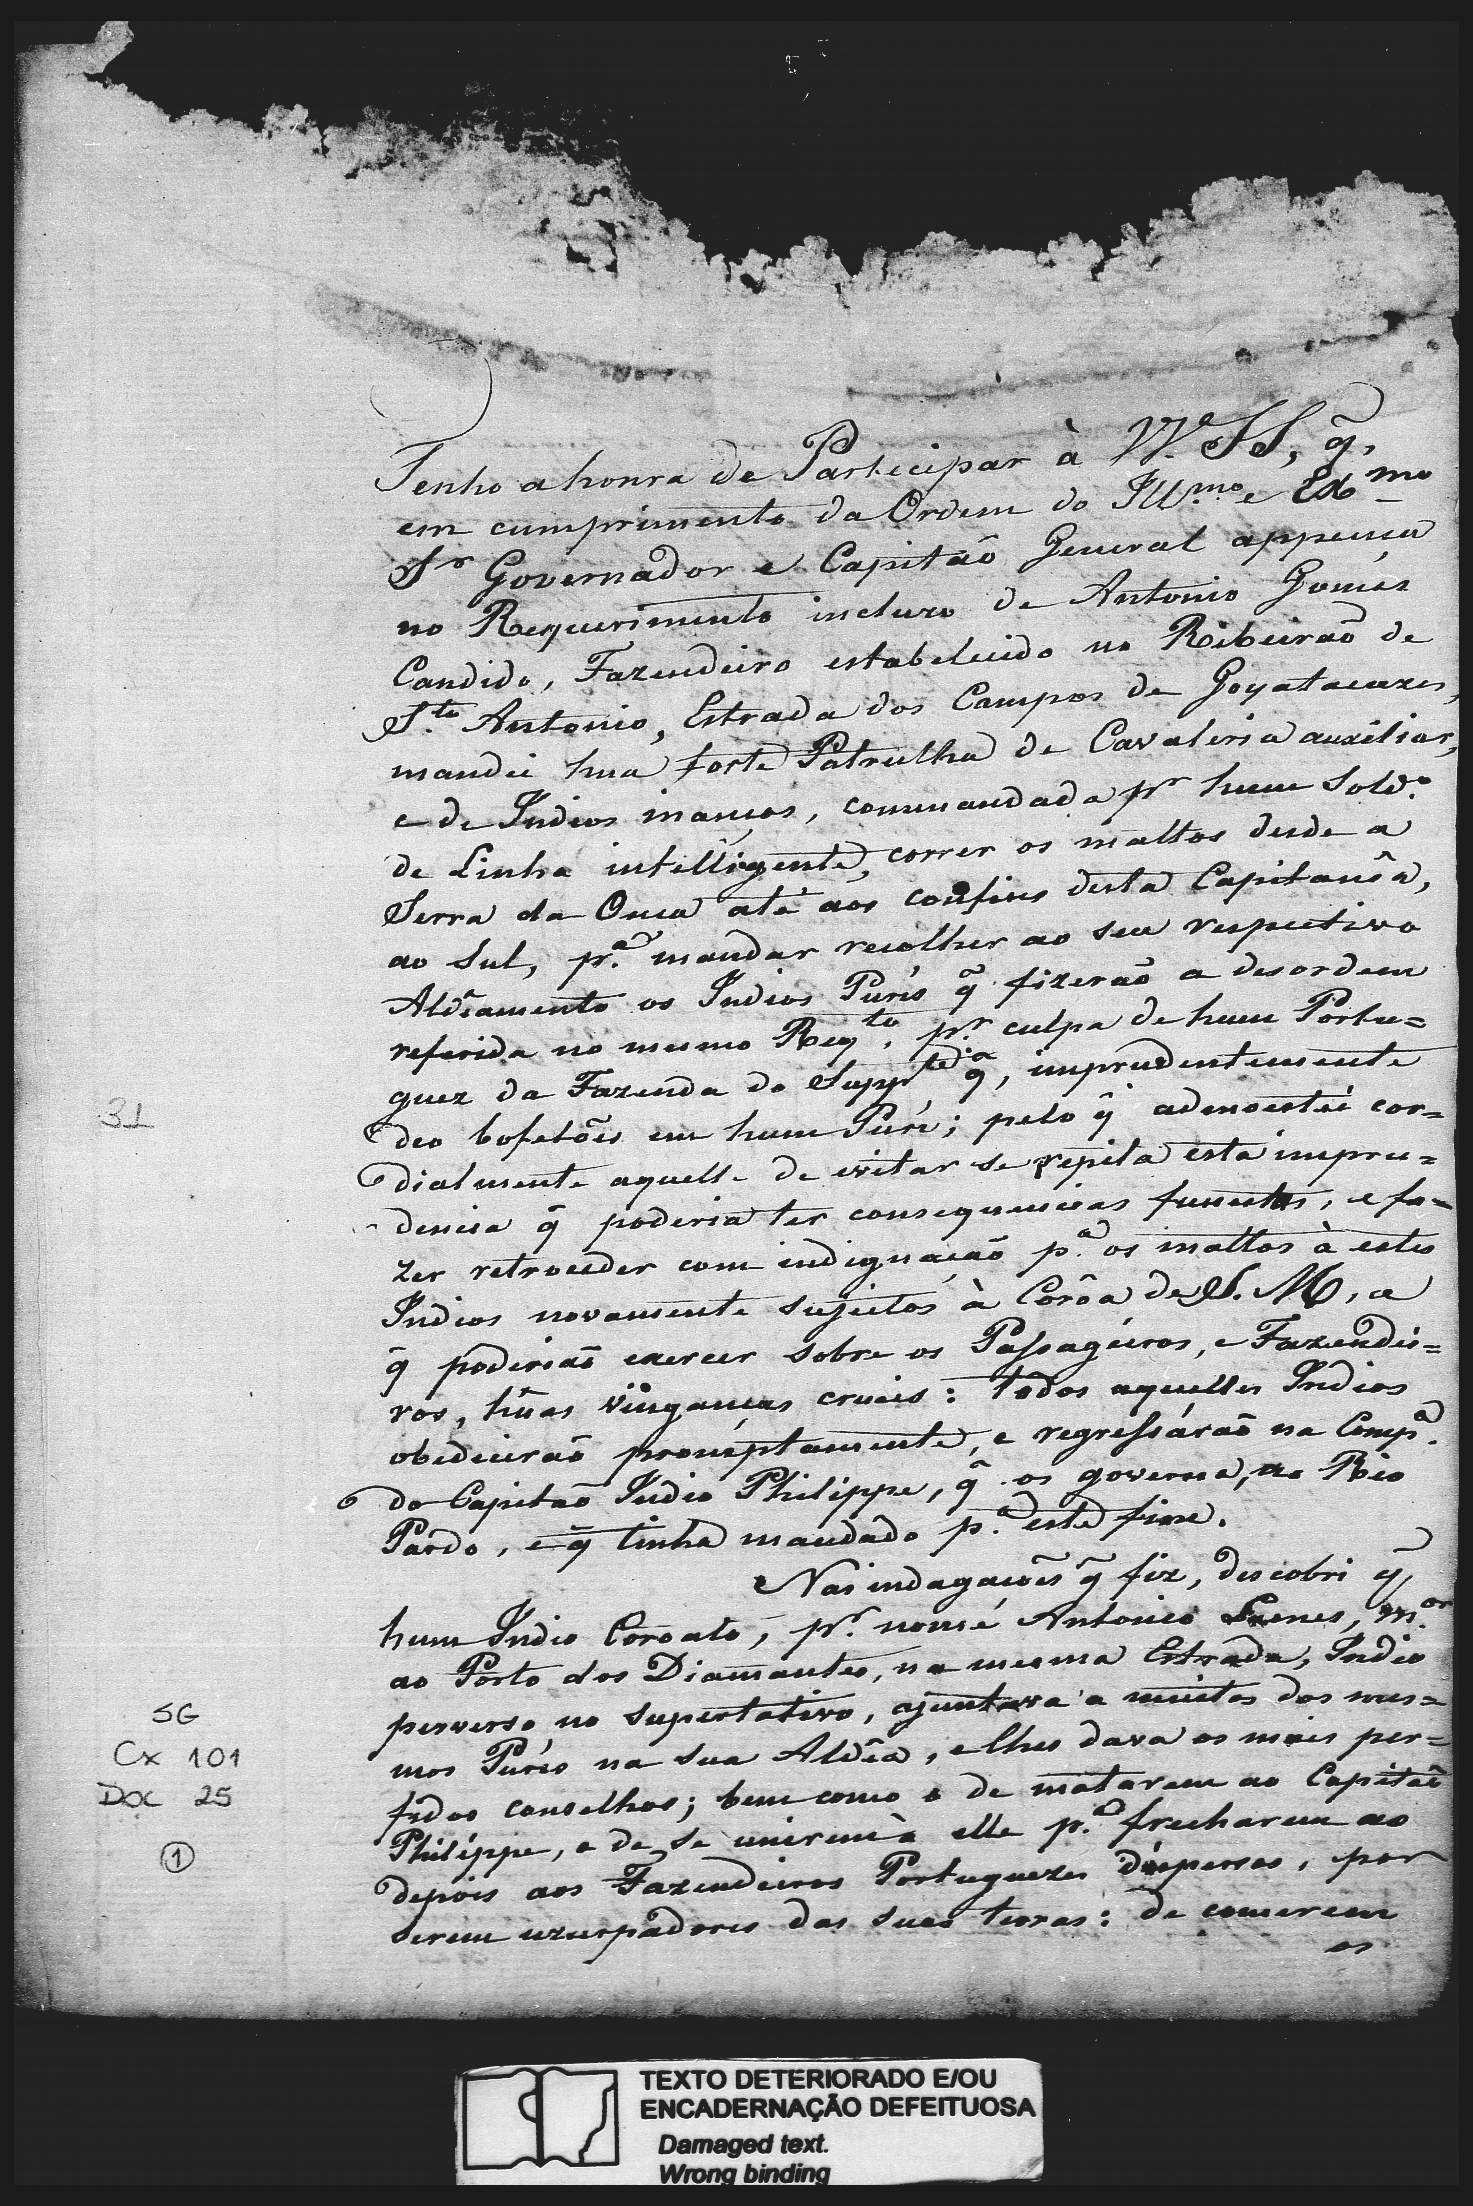 Tenho a honra de Participar à VV. SS, q̃,
em cumprimento da Ordem do Ill.mo e Ex.mo
Sr Governador e Capitão General appensa
no Requerimento incluzo de Antonio Gomes
Candido, Fazendeiro estabelecido no Ribeirão de
S.to Antonio, Estrada dos Campos de Goyatacazes,
mandei hua forte Patrulha de Cavaleria auxiliar,
e de Indios mansos, commandada pr hum Sold.o
de Linha intelligente, correr os mattos desde a
Serra da Onca até aos confins desta Capitanîa,
ao Sul, pr.a mandar recolher ao seu respectivo
Aldêamento os Indios Purís q̃ fizerão a desordem
referida no mesmo Reqto, pr. culpa de hum Portu=
guez da Fazenda do Suppte. q̃, imprudentemente
deo bofetões em hum Purí; pelo q̃ admoestei cor=
dialmente aquelle de evitar se repita esta impru=
dencia q̃ poderia ter consequencias funestas, e fa=
zer retroceder com indignação p.a os mattos à estes
Indios novamente sujeitos à Corôa de S. M, e
q̃ poderião exercer sobre os Passageiros, e Fazendei=
ros, hũas vinganças crueis: todos aquelles Indios
obedecerão promptamente, e regressárão na Comp.a
do Capitão Indio Philippe, q̃ os governa, ao Rio
Pardo, e q̃ tinha mandado p.a este fim.
Nas indagações q̃ fiz, descobri q̃
hum Indio Coroato, pr. nome Antonio Lenes, m.or
ao Porto dos Diamantes, na mesma Estrada, Indio
perverso no superlativo, ajuntava a muitos dos mes=
mos Purís na sua Aldêa, e lhes dava os mais per=
fidos conselhos; bem como o de matarem ao Capitão
Philippe, e de se unirem à elle p.a frecharem ao
depois aos Fazendeiros Portuguezes dispersos, por
serem uzurpadores das suas terras: de comerem
os
31
SG
Cx 101
Doc 25
1
TEXTO DETERIORADO E/OU
ENCADERNAÇÃO DEFEITUOSA
Damaged text.
Wrong binding